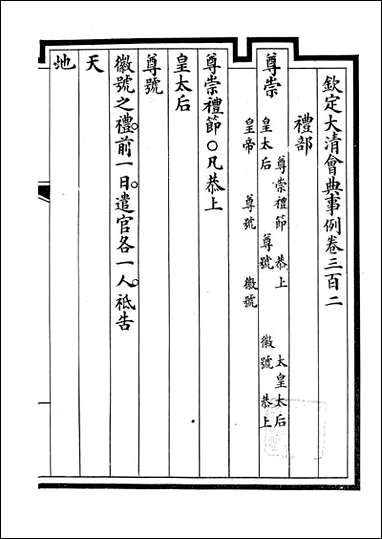 欽定大清會典事例卷三百二
禮部
尊崇
尊崇禮節 恭上 太皇太后
皇太后 尊號 徽號 恭上
皇帝 尊號 徽號
尊崇禮節○凡恭上
皇太后
尊號
徽號之禮。前一日。遣官各一人。祗告
天
地